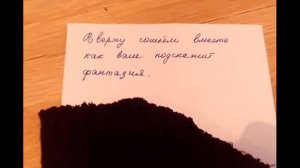 В верху сошьём вместе
как вам подскажит
фантазия.